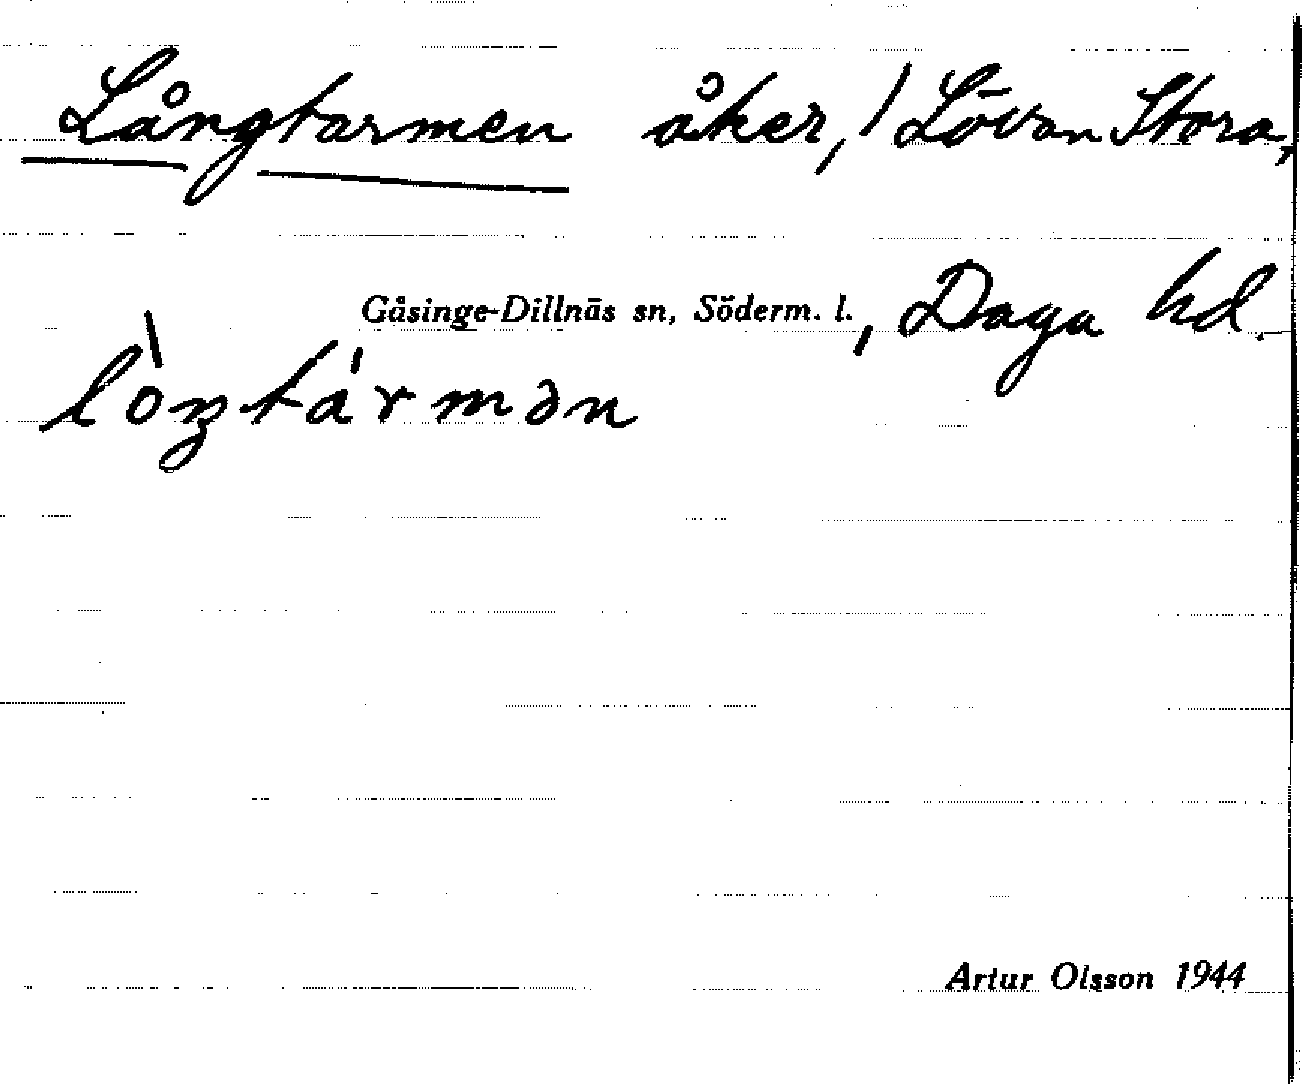 Långtarmen åker, / Lövan Stora,
Gåsinge-Dillnäs sn, Söderm. l., Daga hd.
lò̀ŋtármən
Artur Olsson 1944